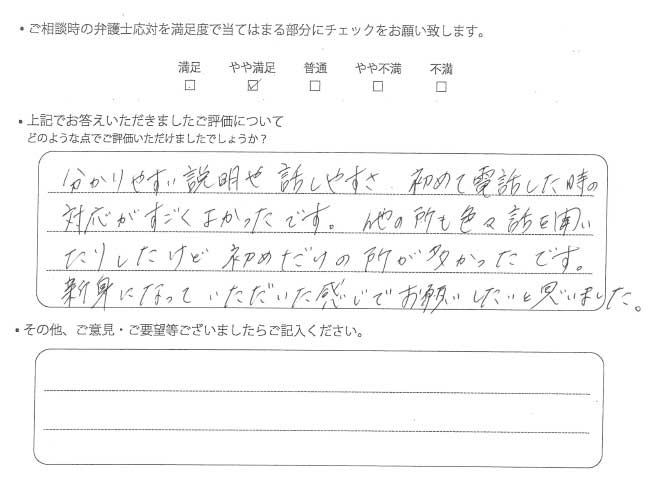 ・ご相談時の弁護士応対を満足度で当てはまる部分にチェックをお願い致します。
満足 やや満足 普通 やや不満 不満
□ ☑ □ □ □
・上記でお答えいただきましたご評価について
どのような点でご評価いただけましたでしょうか？
分かりやすい説明や 話しやすさ 初めて電話した時の
対応がすごくよかったです。他の所も色々話を聞い
たりしたけど 初めだけの所が多かったです。
新身になっていただいた感じでお願いしたいと思いました。
・その他、ご意見・ご要望等ございましたらご記入ください。